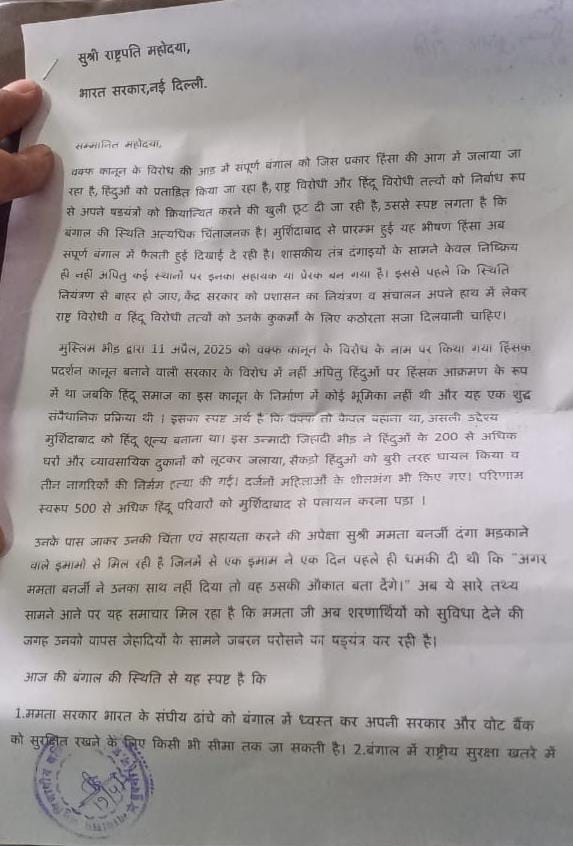 सुश्री राष्ट्रपति महोदया,
भारत सरकार,नई दिल्ली.
सम्मानित महोदया,
वक्फ कानून के विरोध की आड़ में संपूर्ण बंगाल को जिस प्रकार हिंसा की आग में जलाया जा
रहा है, हिंदुओं को प्रताड़ित किया जा रहा है, राष्ट्र विरोधी और हिंदू विरोधी तत्त्वों को निर्बाध रूप
से अपने षडयंत्रों को क्रियान्वित करने की खुली छूट दी जा रही है, उससे स्पष्ट लगता है कि
बंगाल की स्थिति अत्यधिक चिंताजनक है। मुर्शिदाबाद से प्रारम्भ हुई यह भीषण हिंसा अब
संपूर्ण बंगाल में फैलती हुई दिखाई दे रही है। शासकीय तंत्र दंगाइयों के सामने केवल निष्क्रिय
ही नहीं अपितु कई स्थानों पर इनका सहायक या प्रेरक बन गया है। इससे पहले कि स्थिति
नियंत्रण से बाहर हो जाए, केंद्र सरकार को प्रशासन का नियंत्रण व संचालन अपने हाथ में लेकर
राष्ट्र विरोधी व हिंदू विरोधी तत्वों को उनके कुकर्मों के लिए कठोरता सजा दिलवानी चाहिए।
मुस्लिम भीड़ द्वारा 11 अप्रैल, 2025 को वक्फ कानून के विरोध के नाम पर किया गया हिंसक
प्रदर्शन कानून बनाने वाली सरकार के विरोध में नहीं अपितु हिंदुओं पर हिंसक आक्रमण के रूप
में था जबकि हिंदू समाज का इस कानून के निर्माण में कोई भूमिका नहीं थी और यह एक शुद्ध
संवैधानिक प्रक्रिया थी । इसका स्पष्ट अर्थ है कि वक्फ तो केवल बहाना था, असली उद्देश्य
मुर्शिदाबाद को हिंदू शून्य बनाना था। इस उन्मादी जिहादी भीड़ ने हिंदुओं के 200 से अधिक
घरों और व्यावसायिक दुकानों को लूटकर जलाया, सैकड़ो हिंदुओं को बुरी तरह घायल किया व
तीन नागरिकों की निर्मम हत्या की गई। दर्जनों महिलाओं के शीलभंग भी किए गए। परिणाम
स्वरूप 500 से अधिक हिंदू परिवारों को मुर्शिदाबाद से पलायन करना पड़ा ।
उनके पास जाकर उनकी चिंता एवं सहायता करने की अपेक्षा सुश्री ममता बनर्जी दंगा भड़काने
वाले इमामो से मिल रही है जिनमें से एक इमाम ने एक दिन पहले ही धमकी दी थी कि "अगर
ममता बनर्जी ने उनका साथ नहीं दिया तो वह उसकी औकात बता देंगे।" अब ये सारे तथ्य
सामने आने पर यह समाचार मिल रहा है कि ममता जी अब शरणार्थियों को सुविधा देने की
जगह उनको वापस जेहादियों के सामने जबरन परोसने का षड्यंत्र कर रही है।
आज की बंगाल की स्थिति से यह स्पष्ट है कि
1.ममता सरकार भारत के संघीय ढांचे को बंगाल में ध्वस्त कर अपनी सरकार और वोट बैंक
को सुरक्षित रखने के लिए किसी भी सीमा तक जा सकती है। 2.बंगाल में राष्ट्रीय सुरक्षा खतरे में